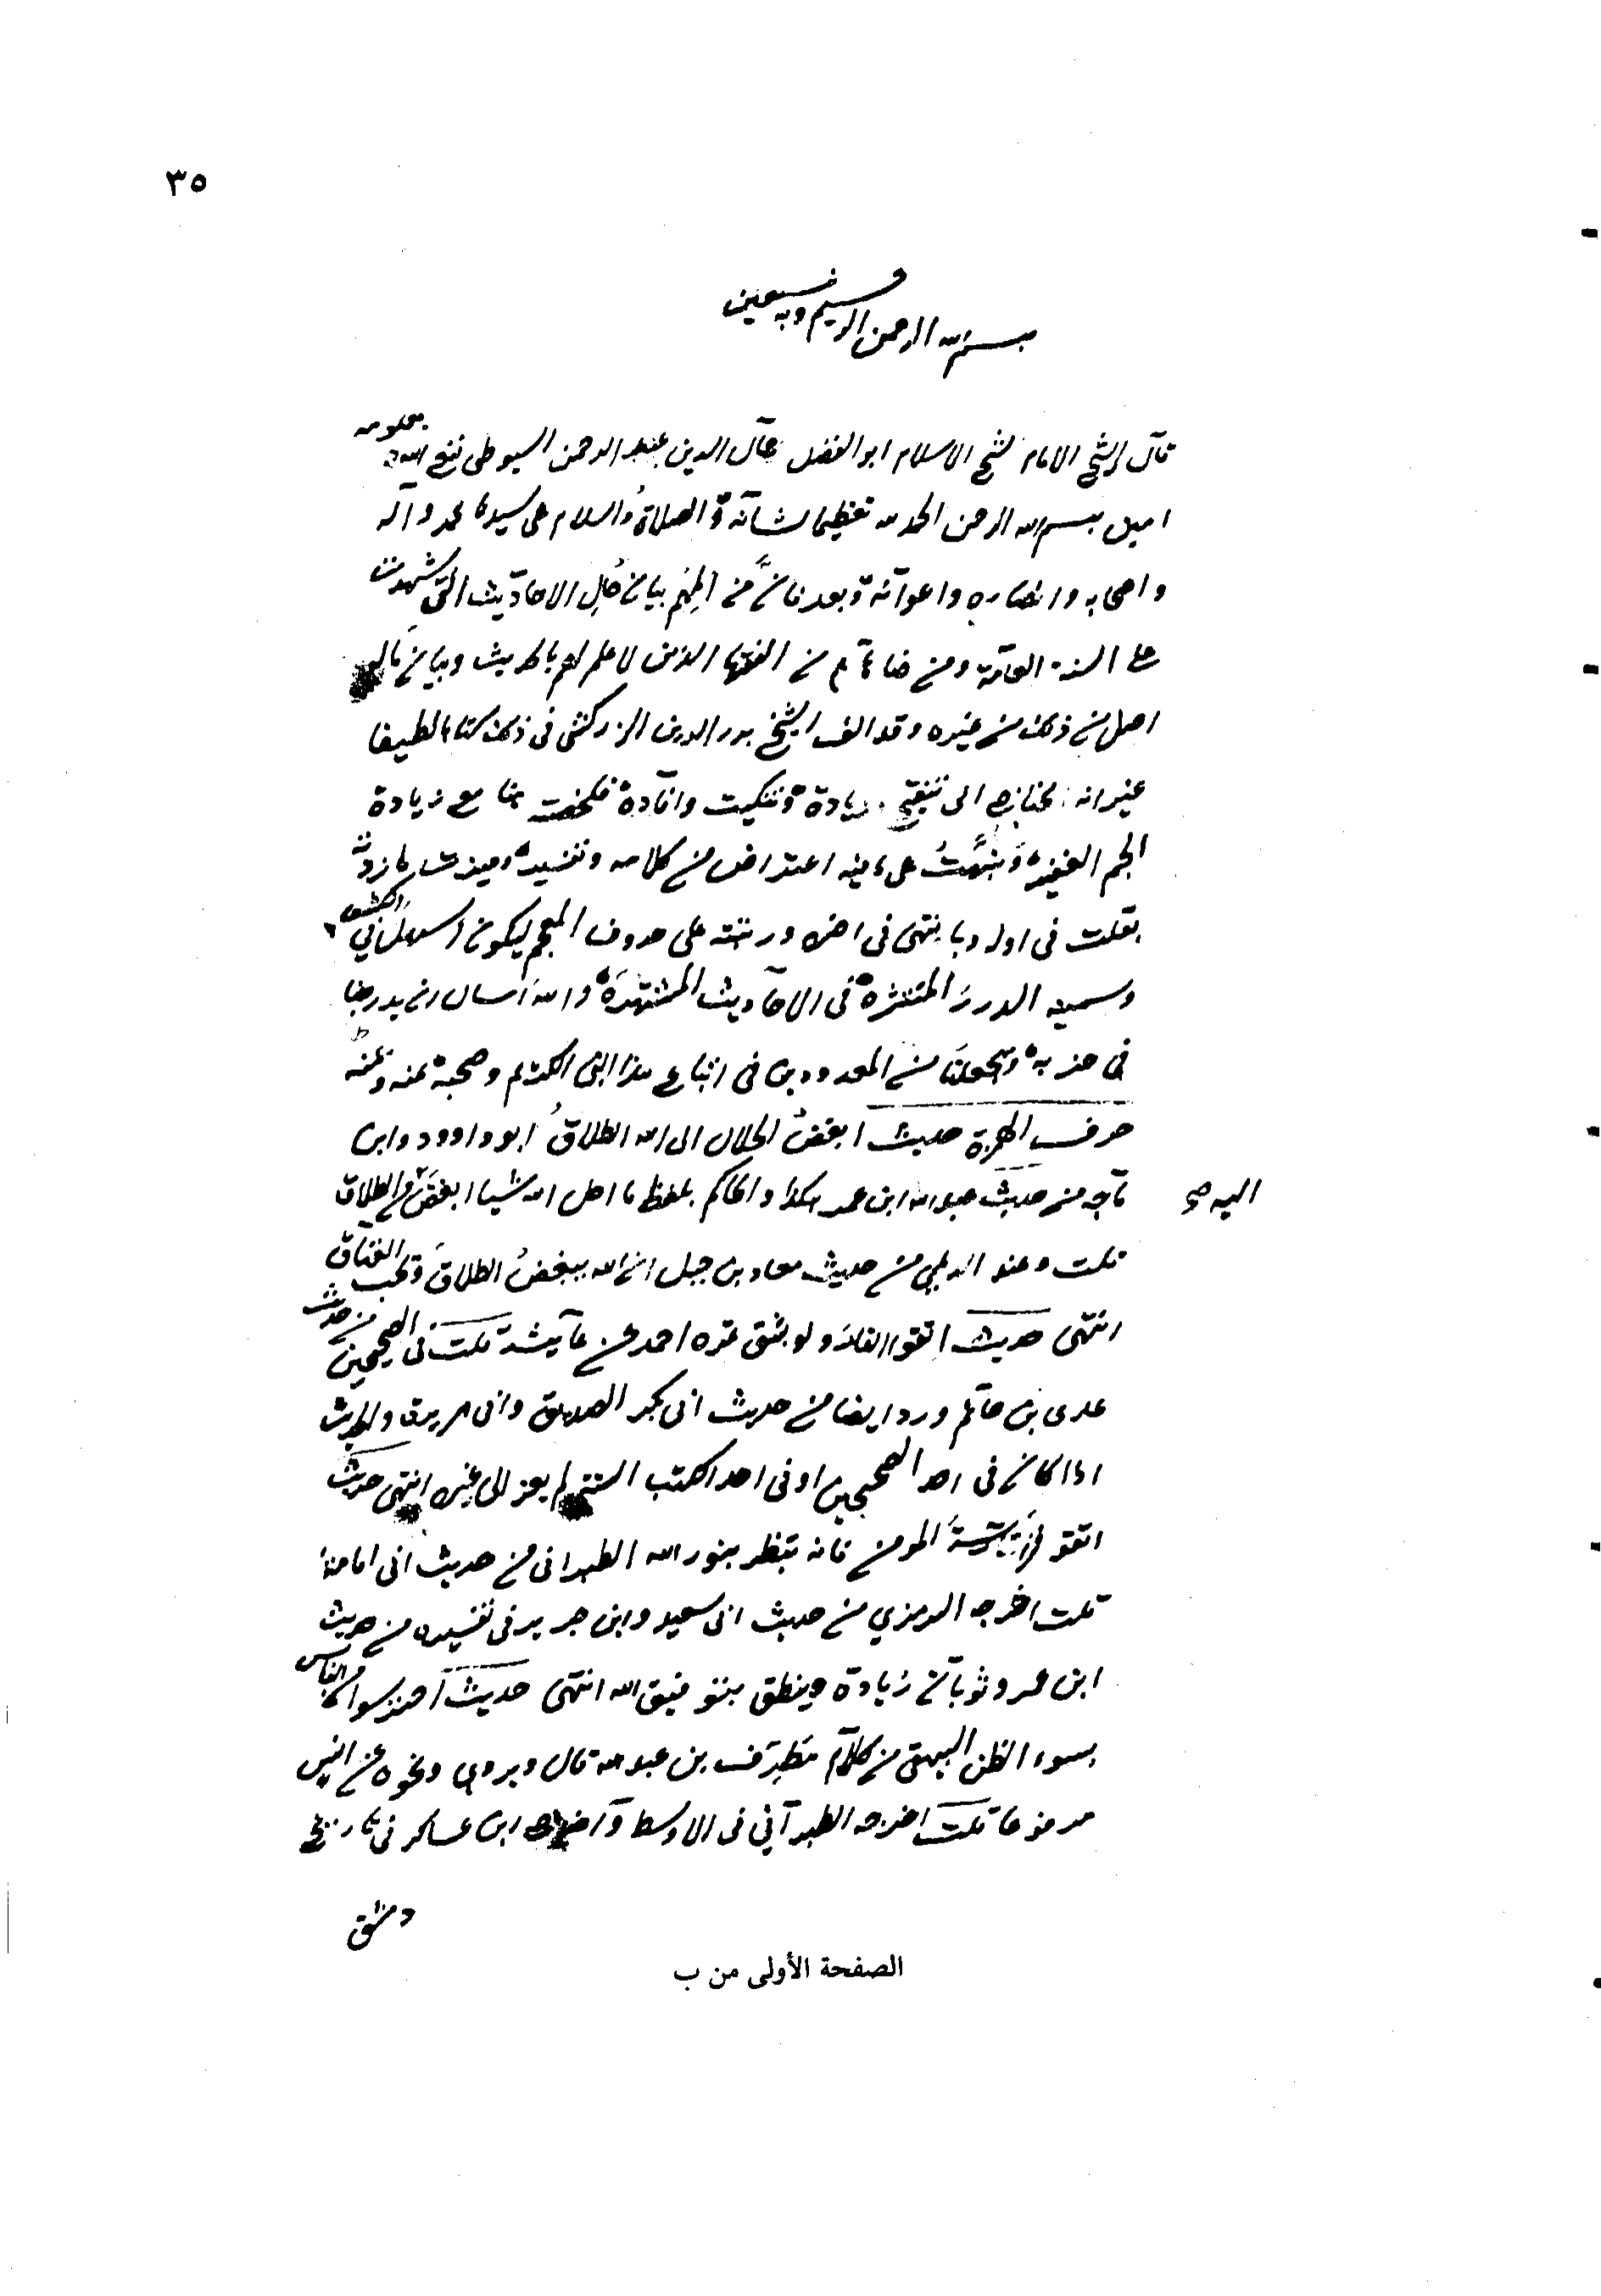 ٣٥
بسم الله الرحمن الرحيم وبه نستعين
قال الشيخ الامام شيخ الاسلام ابو الفضل جلال الدين عبد الرحمن السيوطي نفع الله بعلومه
امين بسم الله الرحمن الحمد لله تعظيما لشانه والصلاة والسلام على سيدنا محمد وآله
واصحابه وانصاره واعوانه وبعد فان من المهم بيان حال الاحاديث التي شهرت
على السنة العامة ومن ضاهاهم من الفقهاء الذين لا علم لهم بالحديث وبيان ماله
اصل من ذلك من غيره وقد الف الشيخ بدر الدين الزركشي في ذلك كتابا لطيفا
غير انه محتاج الى تنقيح وزيادة وتنكيت وافادة فلخصت هنا مع زيادة
الجم الغفير ونبهت على ما فيه اعتراض من كلامه وتفسيره وميزت ما زدته
بقلت في اوله وبانتهى في اخره ورتبته على حروف المعجم ليكون اسهل في الكشف
وسميته الدرر المنتثرة في الاحاديث المشتهرة والله اسال ان يدرجنا
في حزبه ويجعلنا من المعدودين في اتباع هذا النبي الكريم وصحبه بمنه ويمنه
حرف الهمزة حديث ابغض الحلال الى الله الطلاق ابو داوود وابن
ماجه من حديث عبد الله ابن عمر هكذا والحاكم بلفظ ما احل الله شيا ابغض من الطلاق
اليه صح
قلت وعند الديلمي من حديث معاذ بن جبل ان الله يبغض الطلاق ويحب العتاق
انتهى حديث اتقوا النار ولو بشق تمره احمد عن عائشة قلت في الصحيحين من حديث
عدى بن حاتم وورد ايضا من حديث ابى بكر الصديق وابى هريرة والحديث
اذا كان في احد الصحيحين او في احد الكتب الستة لم يعز الى غيره انتهى حديث
اتقو فراسة المومن فانه ينظر بنور الله الطبراني من حديث ابى امامة
قلت اخرجه الترمذي من حديث ابى سعيد وابن جرير في تفسيره من حديث
ابن عمر وثوبان زيادة وينطق بتوفيق الله انتهى حديث احترسوا من الناس
بسوء الظن البيهقي من كلام مطرف بن عبد الله قال ويروى ونحوه عن انس
مرفوعا قلت اخرجه الطبراني في الاوسط واخرجه ابن عساكر في تاريخ
دمشق
الصفحة الأولى من ب